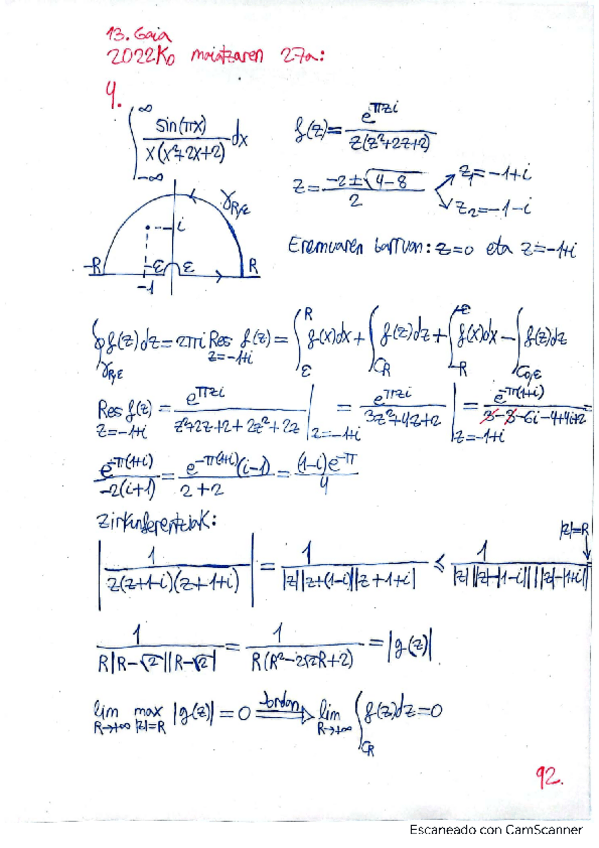 13. Gaia
2022Ko maiatzaren 27a:
4.
∫_{-∞}^{∞} sin(πx) / x(x²+2x+2) dx
f(z) = e^{πzi} / z(z²+2z+2)
z = (-2 ± √(4-8)) / 2 → z₁ = -1+i
z₂ = -1-i
Eremuaren barruan: z=0 eta z=-1+i
γ_{R,ε}
i
-R -ε ε R
-1
∮_{γ_{R,ε}} f(z)dz = 2πi Res_{z=-1+i} f(z) = ∫_ε^R f(x)dx + ∫_{C_R} f(z)dz + ∫_{-R}^{-ε} f(x)dx - ∫_{C_{0,ε}} f(z)dz
Res_{z=-1+i} f(z) = e^{πzi} / (z²+2z+2+2z²+2z) |_{z=-1+i} = e^{πzi} / (3z²+4z+2) |_{z=-1+i} = e^{-π(1+i)} / (3-3-6i-4+4i+2)
e^{-π(1+i)} / -2(i+1) = e^{-π(1+i)}(i-1) / (2+2) = (1-i)e^{-π} / 4
Zirkunferentziak:
|z|=R
|1 / z(z+1-i)(z+1+i)| = 1 / |z||z+(1-i)||z+1+i| ≤ 1 / |z|||z|-|1-i||||z|-|1+i||
1 / R|R-√2||R-√2| = 1 / R(R²-2√2R+2) = |g(z)|
lim_{R→+∞} max_{|z|=R} |g(z)| = 0 ⟹ Jordan lim_{R→+∞} ∫_{C_R} f(z)dz = 0
92.
Escaneado con CamScanner